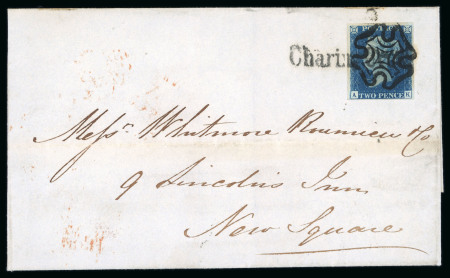 Charin
POS
A TWO PENCE K
Messrs Whitmore & Co
9 Lincolns Inn
New Square